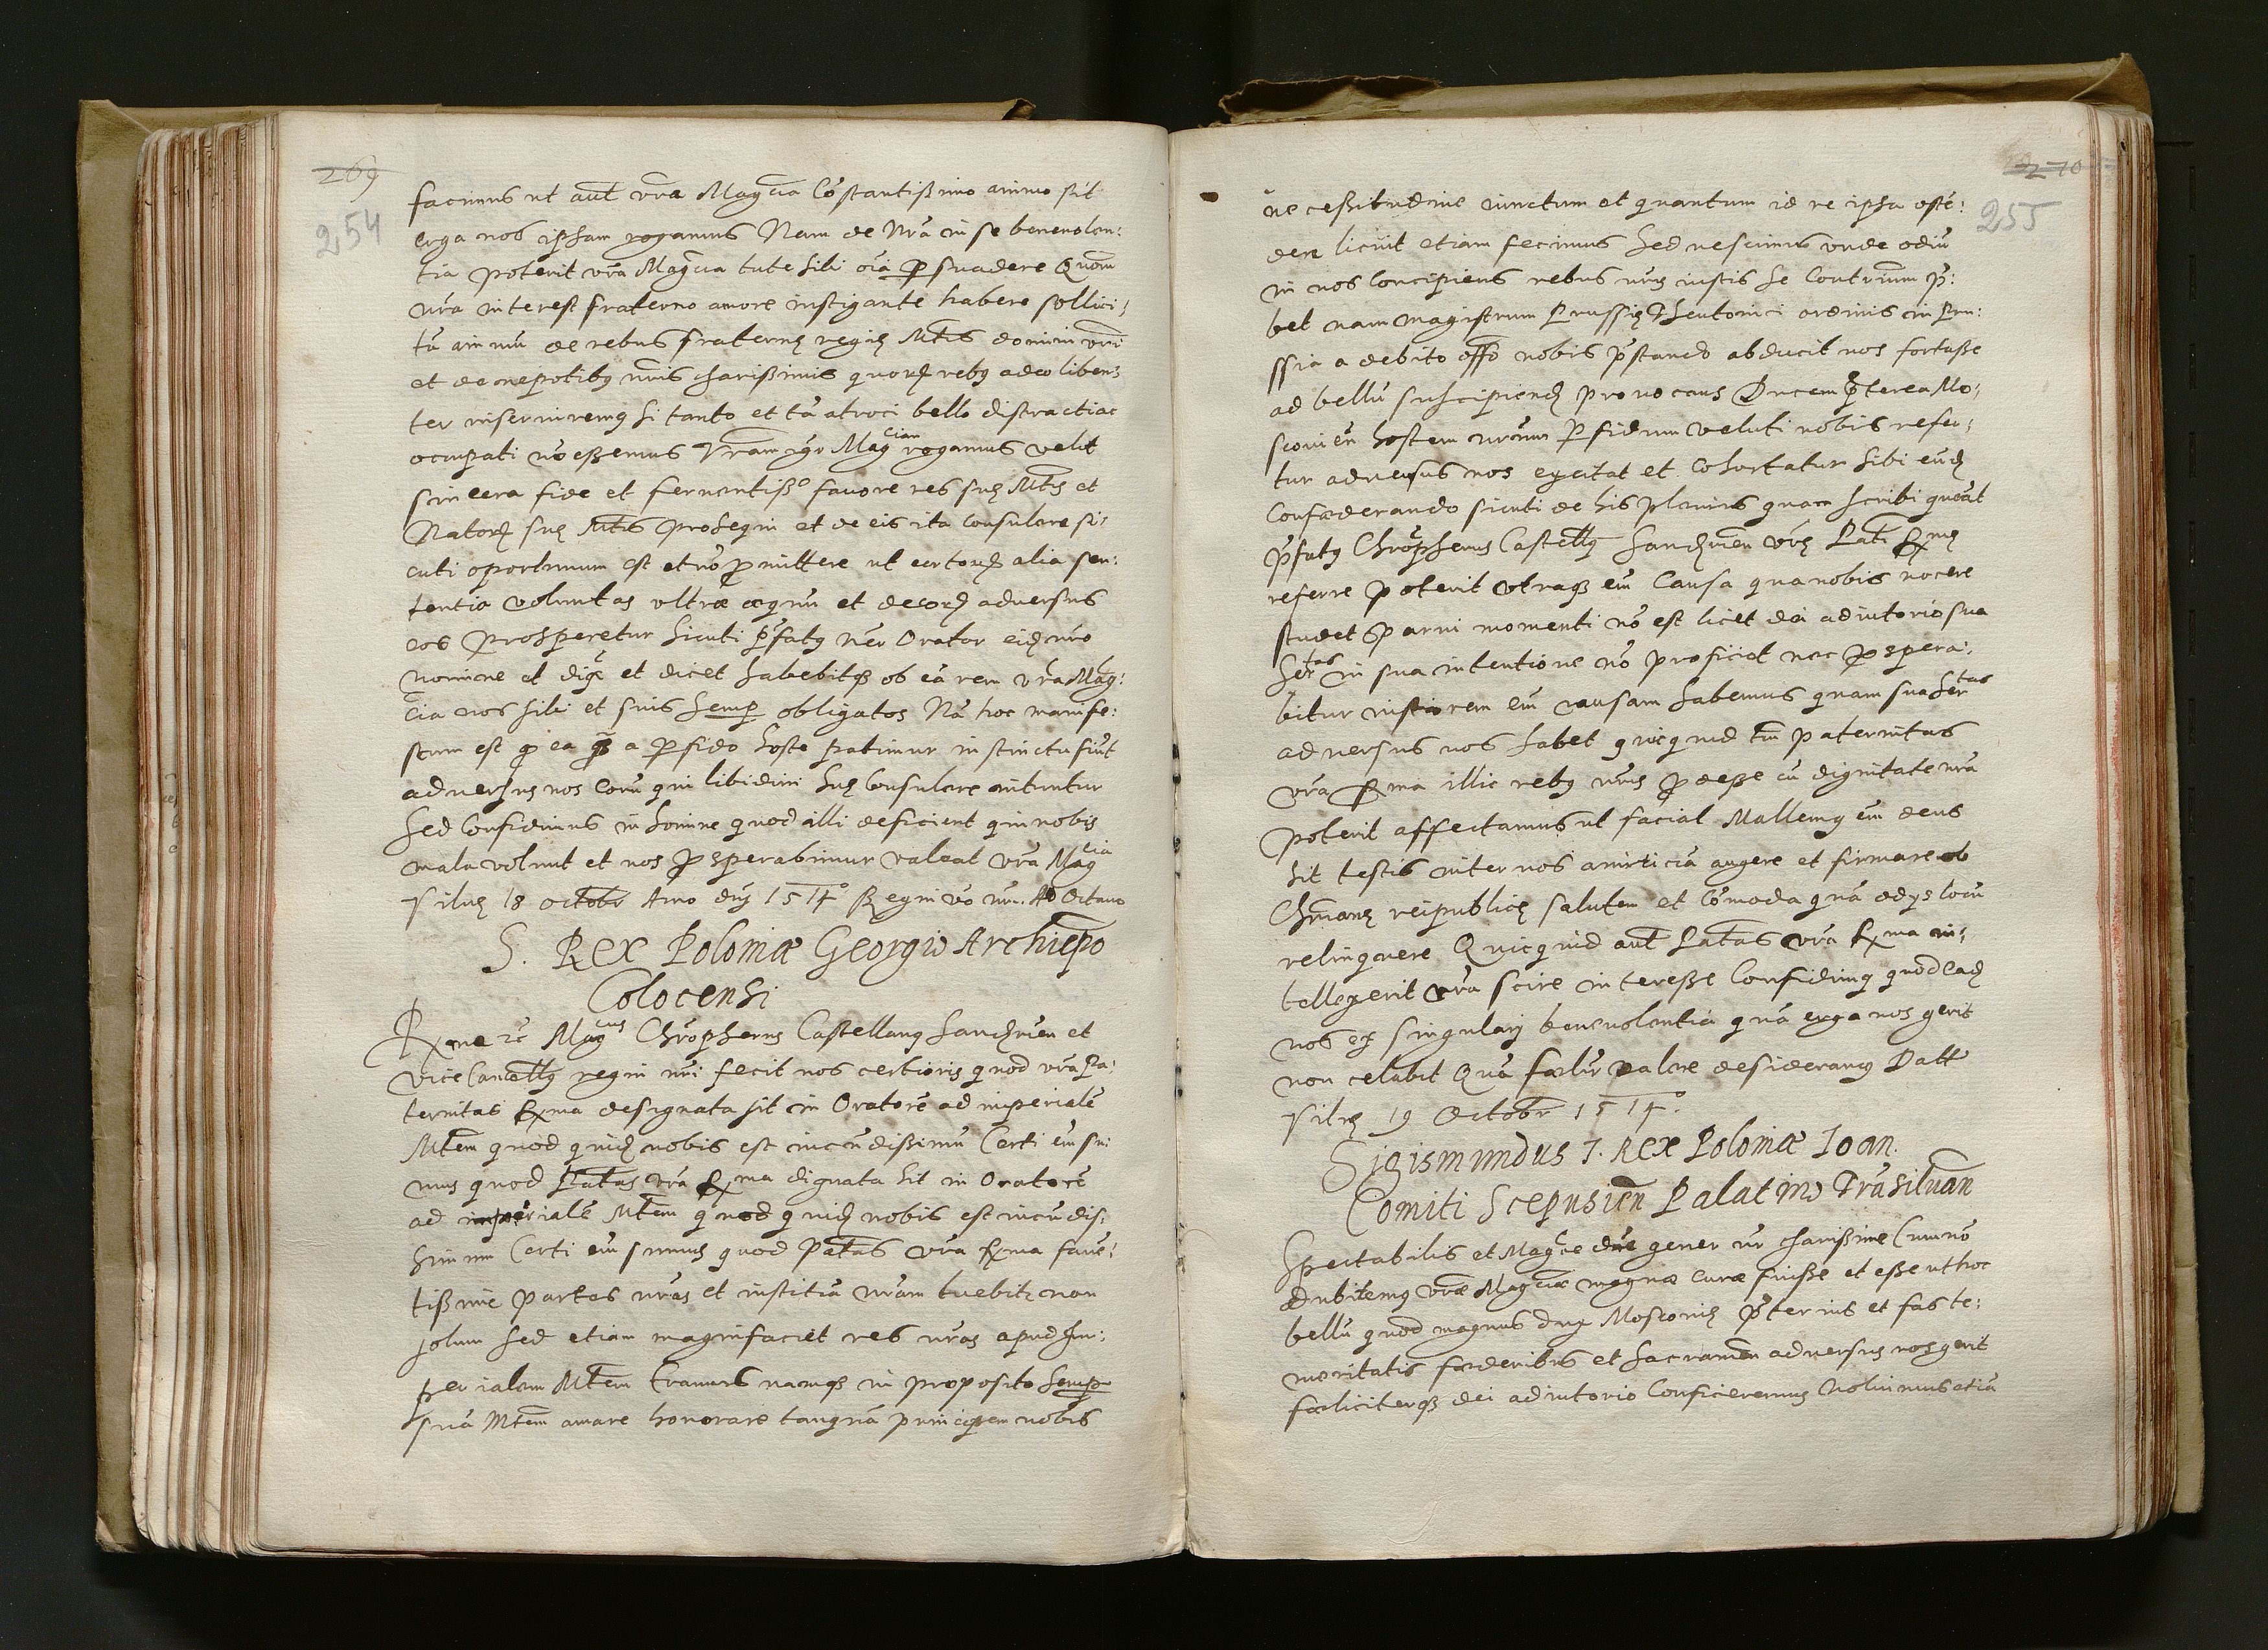 269
254
facimus ut aut̃ vr̃a Mag̃cia Cōstantißimo animo sit
erga nos ipsam rogamus Nam de Nr̃a in se beneuolen:
tia poterit vr̃a Mag̃cia tute sibi oĩa ꝑsuadere Quom̃
nr̃a interest fraterno amore instigante habere sollici,
tũ animũ de rebus fraternę regię Mt̃is domini vr̃i
et de nepotibꝰ nr̃is charißimis quorꝫ rebꝰ adeo liben:
ter inseruiremꝰ si tanto et tã atroci bello distracti ac
occupati nõ eßemus Vram igr̃ Mag ciam rogamus velit
sincera fide et feruentißo fauore res suę Mt̃is et
Natorꝫ suę Mt̃is prosequi et de eis ita consulere si,
cuti oportunum est et nõ ꝑmittere ut certorꝫ alia sen:
tentia voluntas ultra æquũ et decorꝫ aduersus
eos prosperetur Sicuti p̃fatꝰ nr̃ Orator eidꝫ nr̃o
nomine et dix̃ et dicet habebitqꝫ ob eã rem vr̃a Mag:
cia nos sibi et suis semꝑ obligatos Nã hoc manife:
stum est ꝙ ea q̃ a ꝑfido hoste patimur instinctu fiũt
aduersus nos eorũ qui libidini suę Consulere nituntur
Sed Confidimus in homine quod illi deficient qui nobis
mala volunt et nos ꝓsperabimur valeat vr̃a Mag cia
Vilnę 18 Octobr̃ Anno dnĩ 1514° Regni vo nr̃i. A° Octauo
S. Rex Poloniæ Georgio Archiep̃o
Colocensi
Rx̃me ꝛc Mag cus Chr̃opherus Castellanꝰ Sandꝫmien et
viceCancellꝰ regni nr̃i fecit nos certioris quod vr̃a Pa:
ternitas Rx̃ma designata sit in Oratorẽ ad imperialẽ
Mt̃em quod quidꝫ nobis est iucundißimũ Certi eñi su
mus quod Patas vr̃a Rx̃ma dignata sit in Oratorẽ
ad imperialẽ Mt̃em quod quidꝫ nobis est iucũdis:
simũ Certi eñi sumus quod Patas vr̃a Rx̃ma faue:
tißime partes nr̃as et iustitiã nr̃am tuebitꝛ non
solum sed etiam magnifaciet res nr̃as apud Im:
perialem Mt̃em Eramus namqꝫ in proposito semꝑ
suã Mt̃em amare honorare tanquã principem nobis
270
255
necessitudine iunctum et quantum id re ipsa ostẽ:
dere licuit etiam fecimus Sed nescimus unde odiũ
in nos Concipiens rebus nr̃is iustis se Contrarium p̃:
bet nam magistrum Prussię Theutonici ordinis in Pru:
ssia a debito off̃o nobis p̃stando abducit nos fortaße
ad bellũ suscipiendꝫ prouocans Ducem p̃terea Mo,
scouieñ hostem nr̃um ꝑfidum veluti nobis refer,
tur aduersus nos excitat et Cohortatur sibi eũdꝫ
Confæderando sicuti de his plenius quam scribi queat
p̃fatꝰ Chr̃opherus Castellꝰ Sandꝫmieñ vr̃ę Pat̃i Rx̃mę
referre poterit vtraqꝫ eñi Causa qua nobis nocere
studet parui momenti nõ est licet dei adiutorio sua
Ser tas in sua intentione nõ proficiet nec ꝓspera:
bitur iustiorem eñi causam habemus quam sua Ser tas
aduersus nos habet quicquid tñ paternitas
vr̃a Rx̃ma illic rebꝰ nr̃is ꝓdeße cũ dignitate nr̃a
poterit affectamus ut faciat Mallemꝰ eñi deus
sit testis inter nos amicitiã augere et firmare ob
Chr̃ianę reipublicę salutem et Cõmoda quã odijs locũ
relinquere Quicquid aut̃ Patas vr̃a Rx̃ma in,
tellexerit nr̃a scire intereße Confidimꝰ quod eadꝫ
nos ex singulari beneuolentia quã erga nos gerit
non celabit Quã fæl̃r valere desideramꝰ Datt
Vilnę 19 Octobr̃ 1514°.
Sigismundus I. Rex Poloniæ Ioan.
Comiti Scepusień Palatino Trãsiluań
Spectabilis et Mag̃ce dñe gener nr̃ charißime Cum nõ
dubitemꝰ vr̃æ Mag̃ciæ magnæ curæ fuiße et eße ut hoc
bellũ quod magnus dux Moscouię p̃ter ius et fas te:
meritatis fæderibus et sacrameñ aduersus nos gerit
fæliciterqꝫ dei adiutorio Conficeremus Voluimus etiã